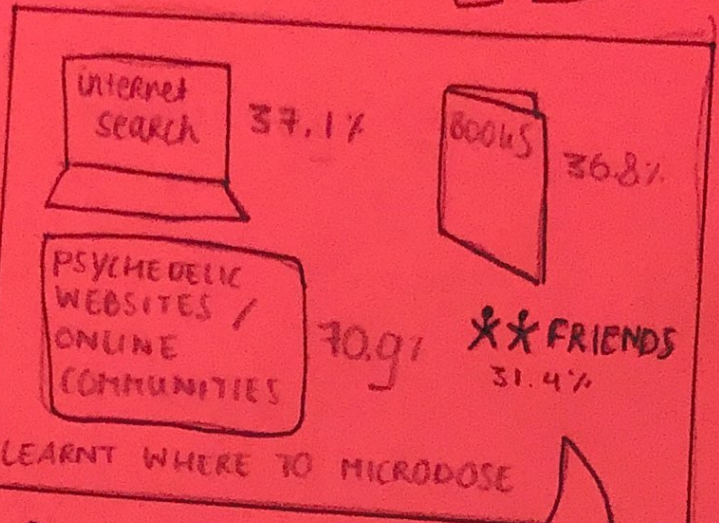 internet
search
37.1%
BOOKS
36.8%
PSYCHEDELIC
WEBSITES /
ONLINE
COMMUNITIES
70.9%
FRIENDS
31.4%
LEARNT WHERE TO MICRODOSE